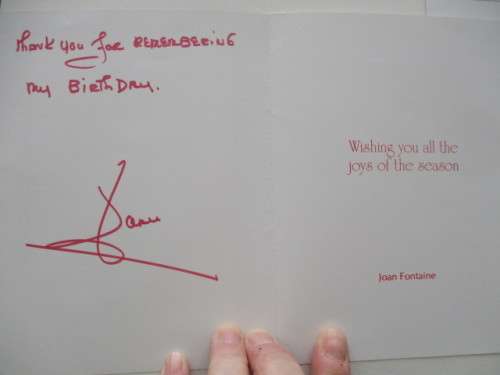 Thank you for REMEMBERING
my BirthDAY.
Joan
Wishing you all the
joys of the season
Joan Fontaine